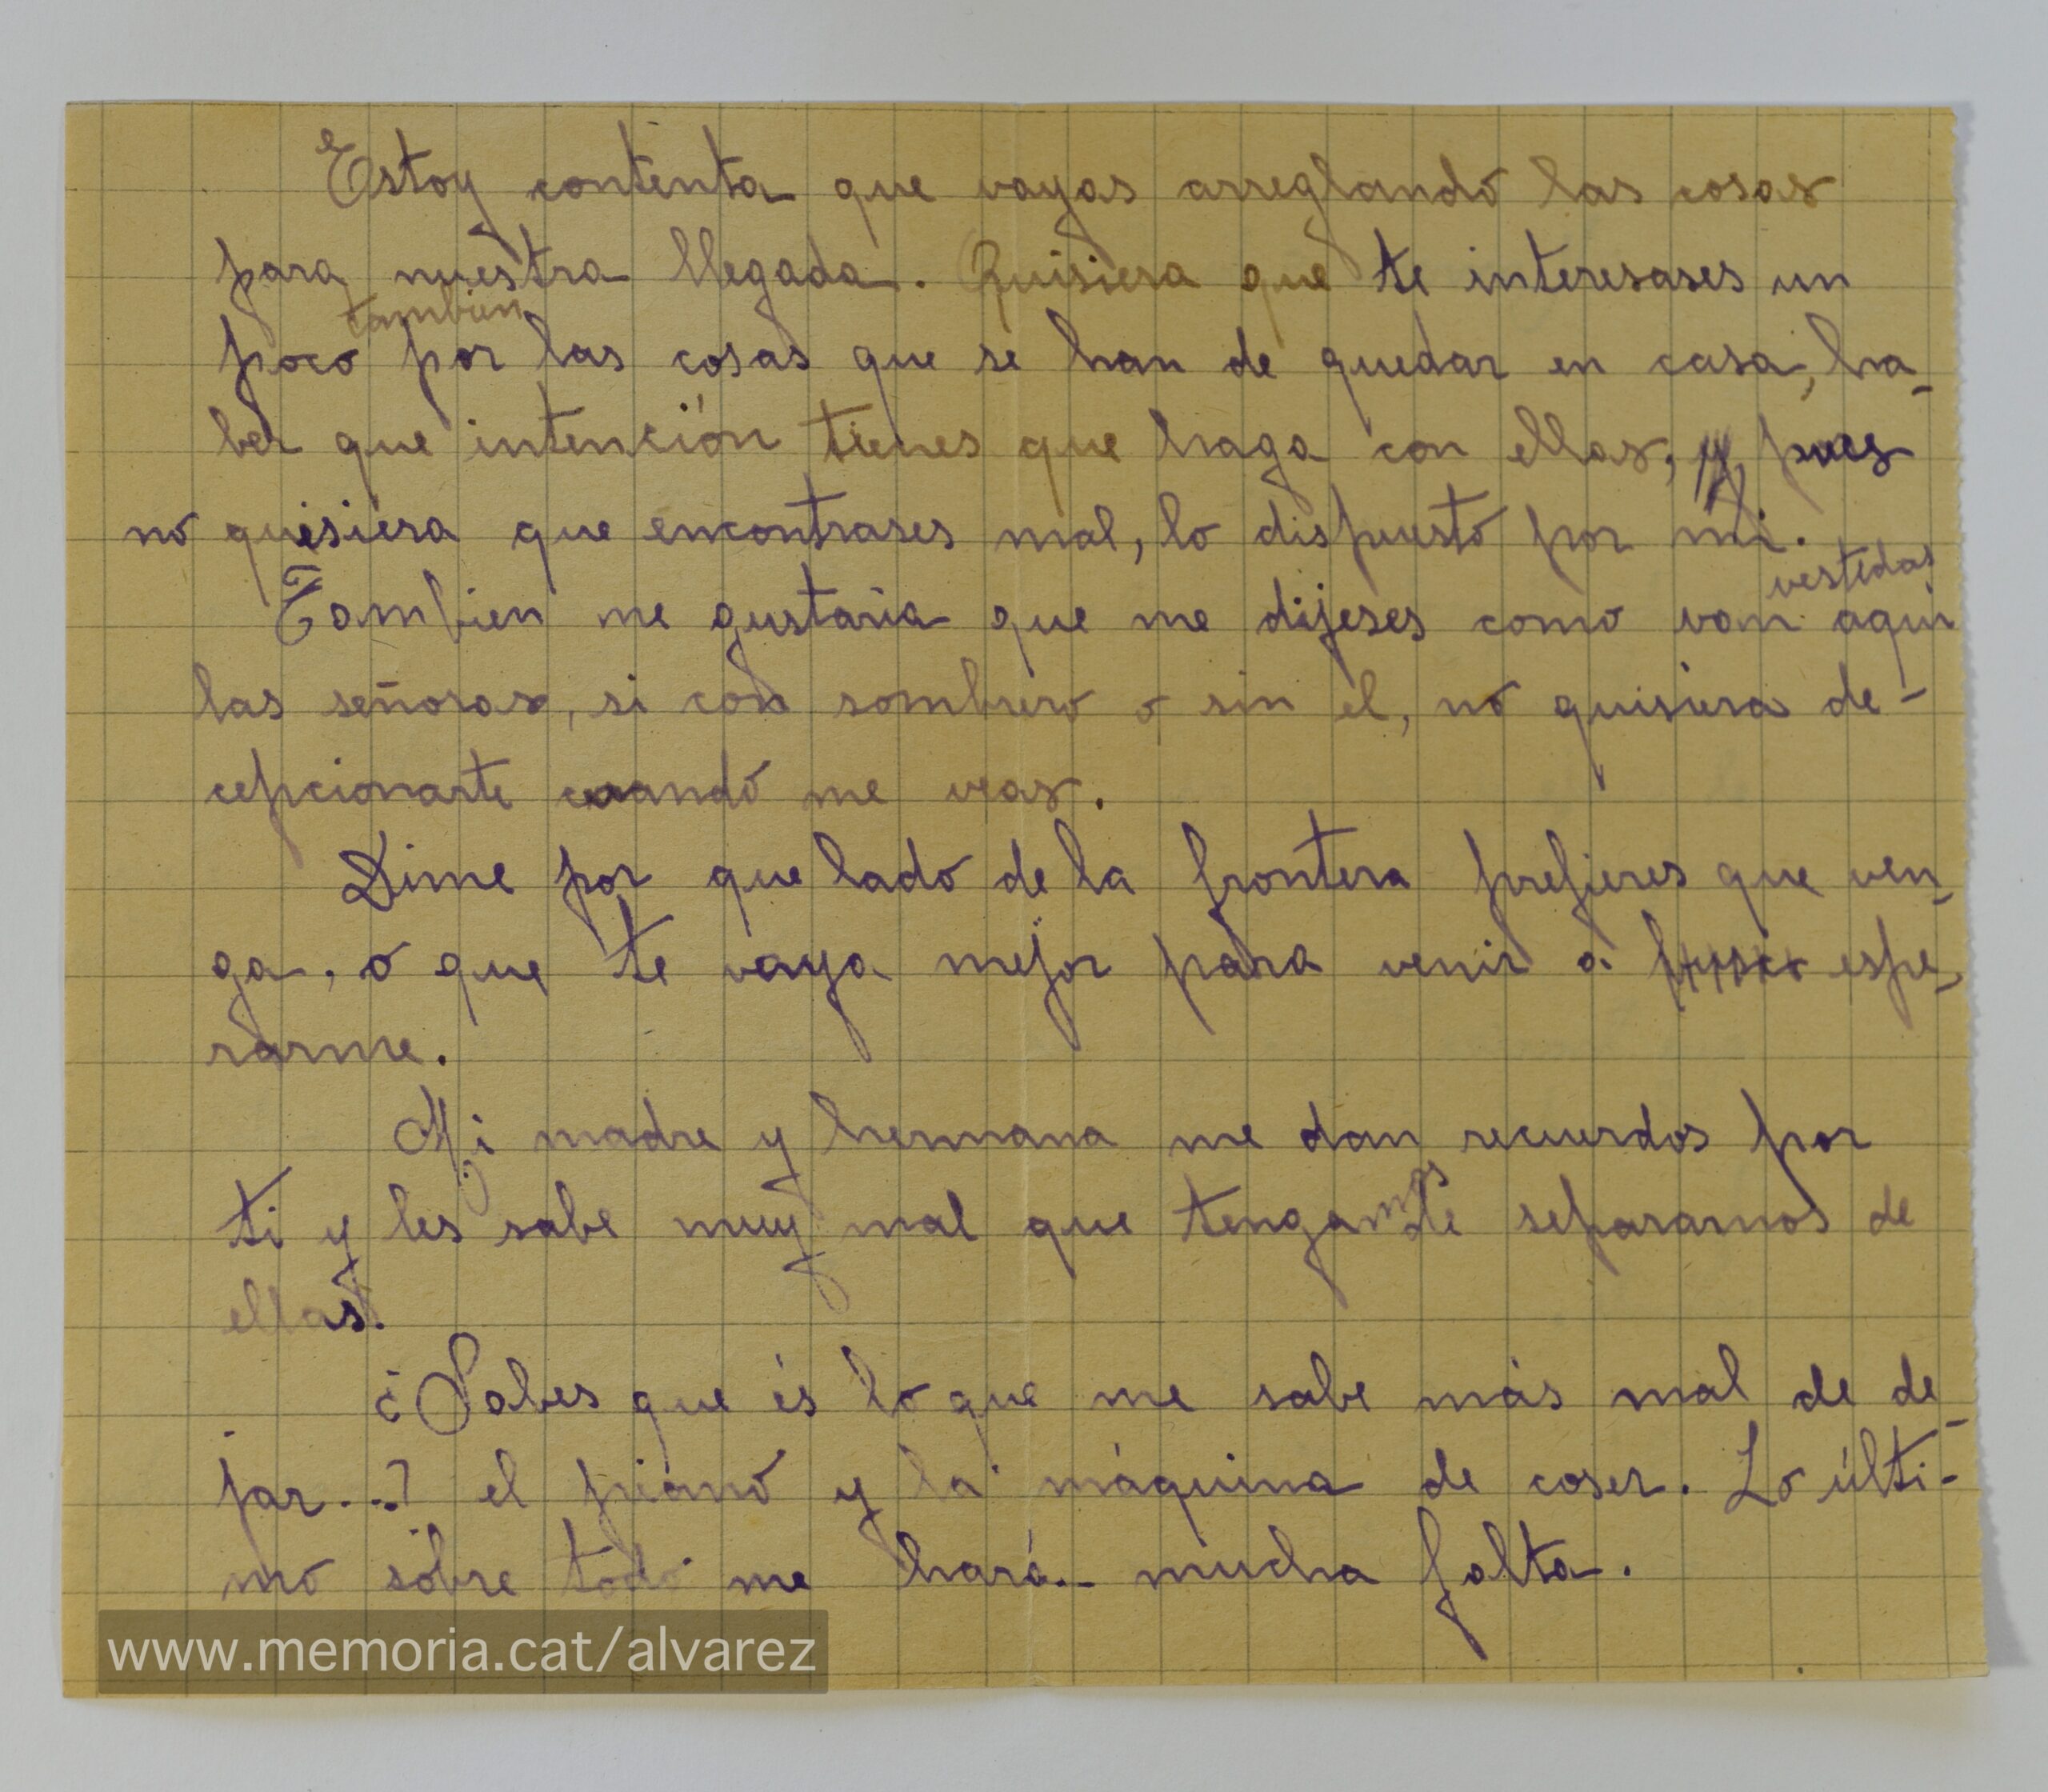 Estoy contenta que vayas arreglando las cosas
para nuestra llegada. Quisiera que te interesases un
también
poco por las cosas que se han de quedar en casa, ha-
ber que intención tienes que haga con ellas, y pues
no quisiera que encontrases mal, lo dispuesto por mi.
vestidas
Tambien me gustaria que me dijeses como van aqui
las señoras, si con sombrero o sin el, no quisiera de-
cepcionarte cuando me veas.
Dime por que lado de la frontera prefieres que ven-
ga, o que te vaya mejor para venir a espe-
rarme.
Mi madre y hermana me dan recuerdos por
ti y les sabe muy mal que tengamos de separarnos de
ellas.
¿Sabes que és lo que me sabe más mal de de-
jar...? el piano y la máquina de coser. Lo últi-
mo sobre todo me hará mucha falta.
www.memoria.cat/alvarez